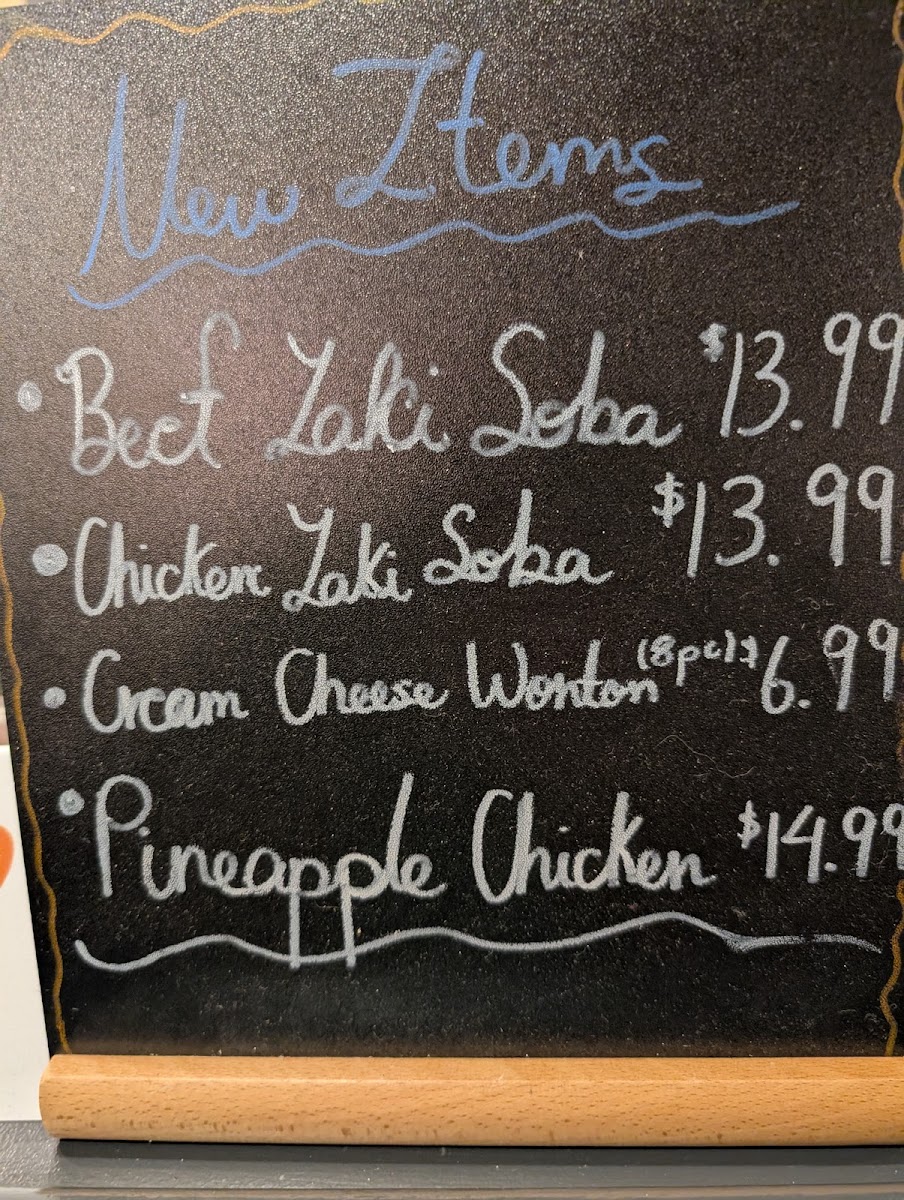 New Items
• Beef Yaki Soba $13.99
• Chicken Yaki Soba $13.99
• Cream Cheese Wonton (8pc) $6.99
• Pineapple Chicken $14.99